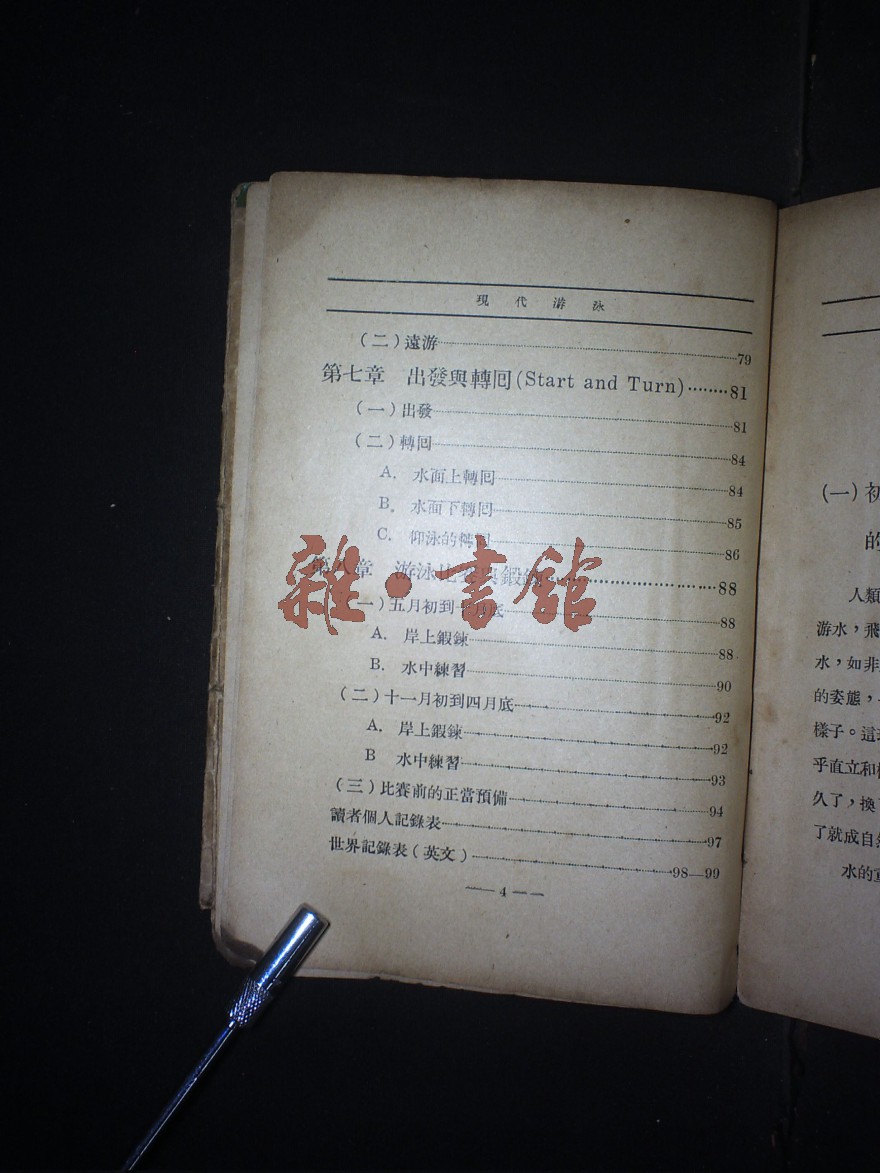 現代游泳
(二)遠游 79
第七章 出發與轉囘(Start and Turn) 81
(一)出發 81
(二)轉囘 84
A. 水面上轉囘 84
B. 水面下轉囘 85
C. 仰泳的轉囘 86
第八章 游泳比賽與鍛鍊 88
(一)五月初到十月底 88
A. 岸上鍛鍊 88
B. 水中練習 90
(二)十一月初到四月底 92
A. 岸上鍛鍊 92
B 水中練習 93
(三)比賽前的正當預備 94
讀者個人記錄表 97
世界記錄表(英文) 98—99
—4—
雜·書館
(一)初
的
人類
游水，飛
水，如非
的姿態，
樣子。這
乎直立和
久了，換
了就成自
水的